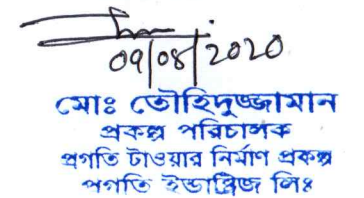 ০৭/০৪/2020
মোঃ তৌহিদুজ্জামান
প্রকল্প পরিচালক
প্রগতি টাওয়ার নির্মাণ প্রকল্প
প্রগতি ইন্ডাষ্ট্রিজ লিঃ